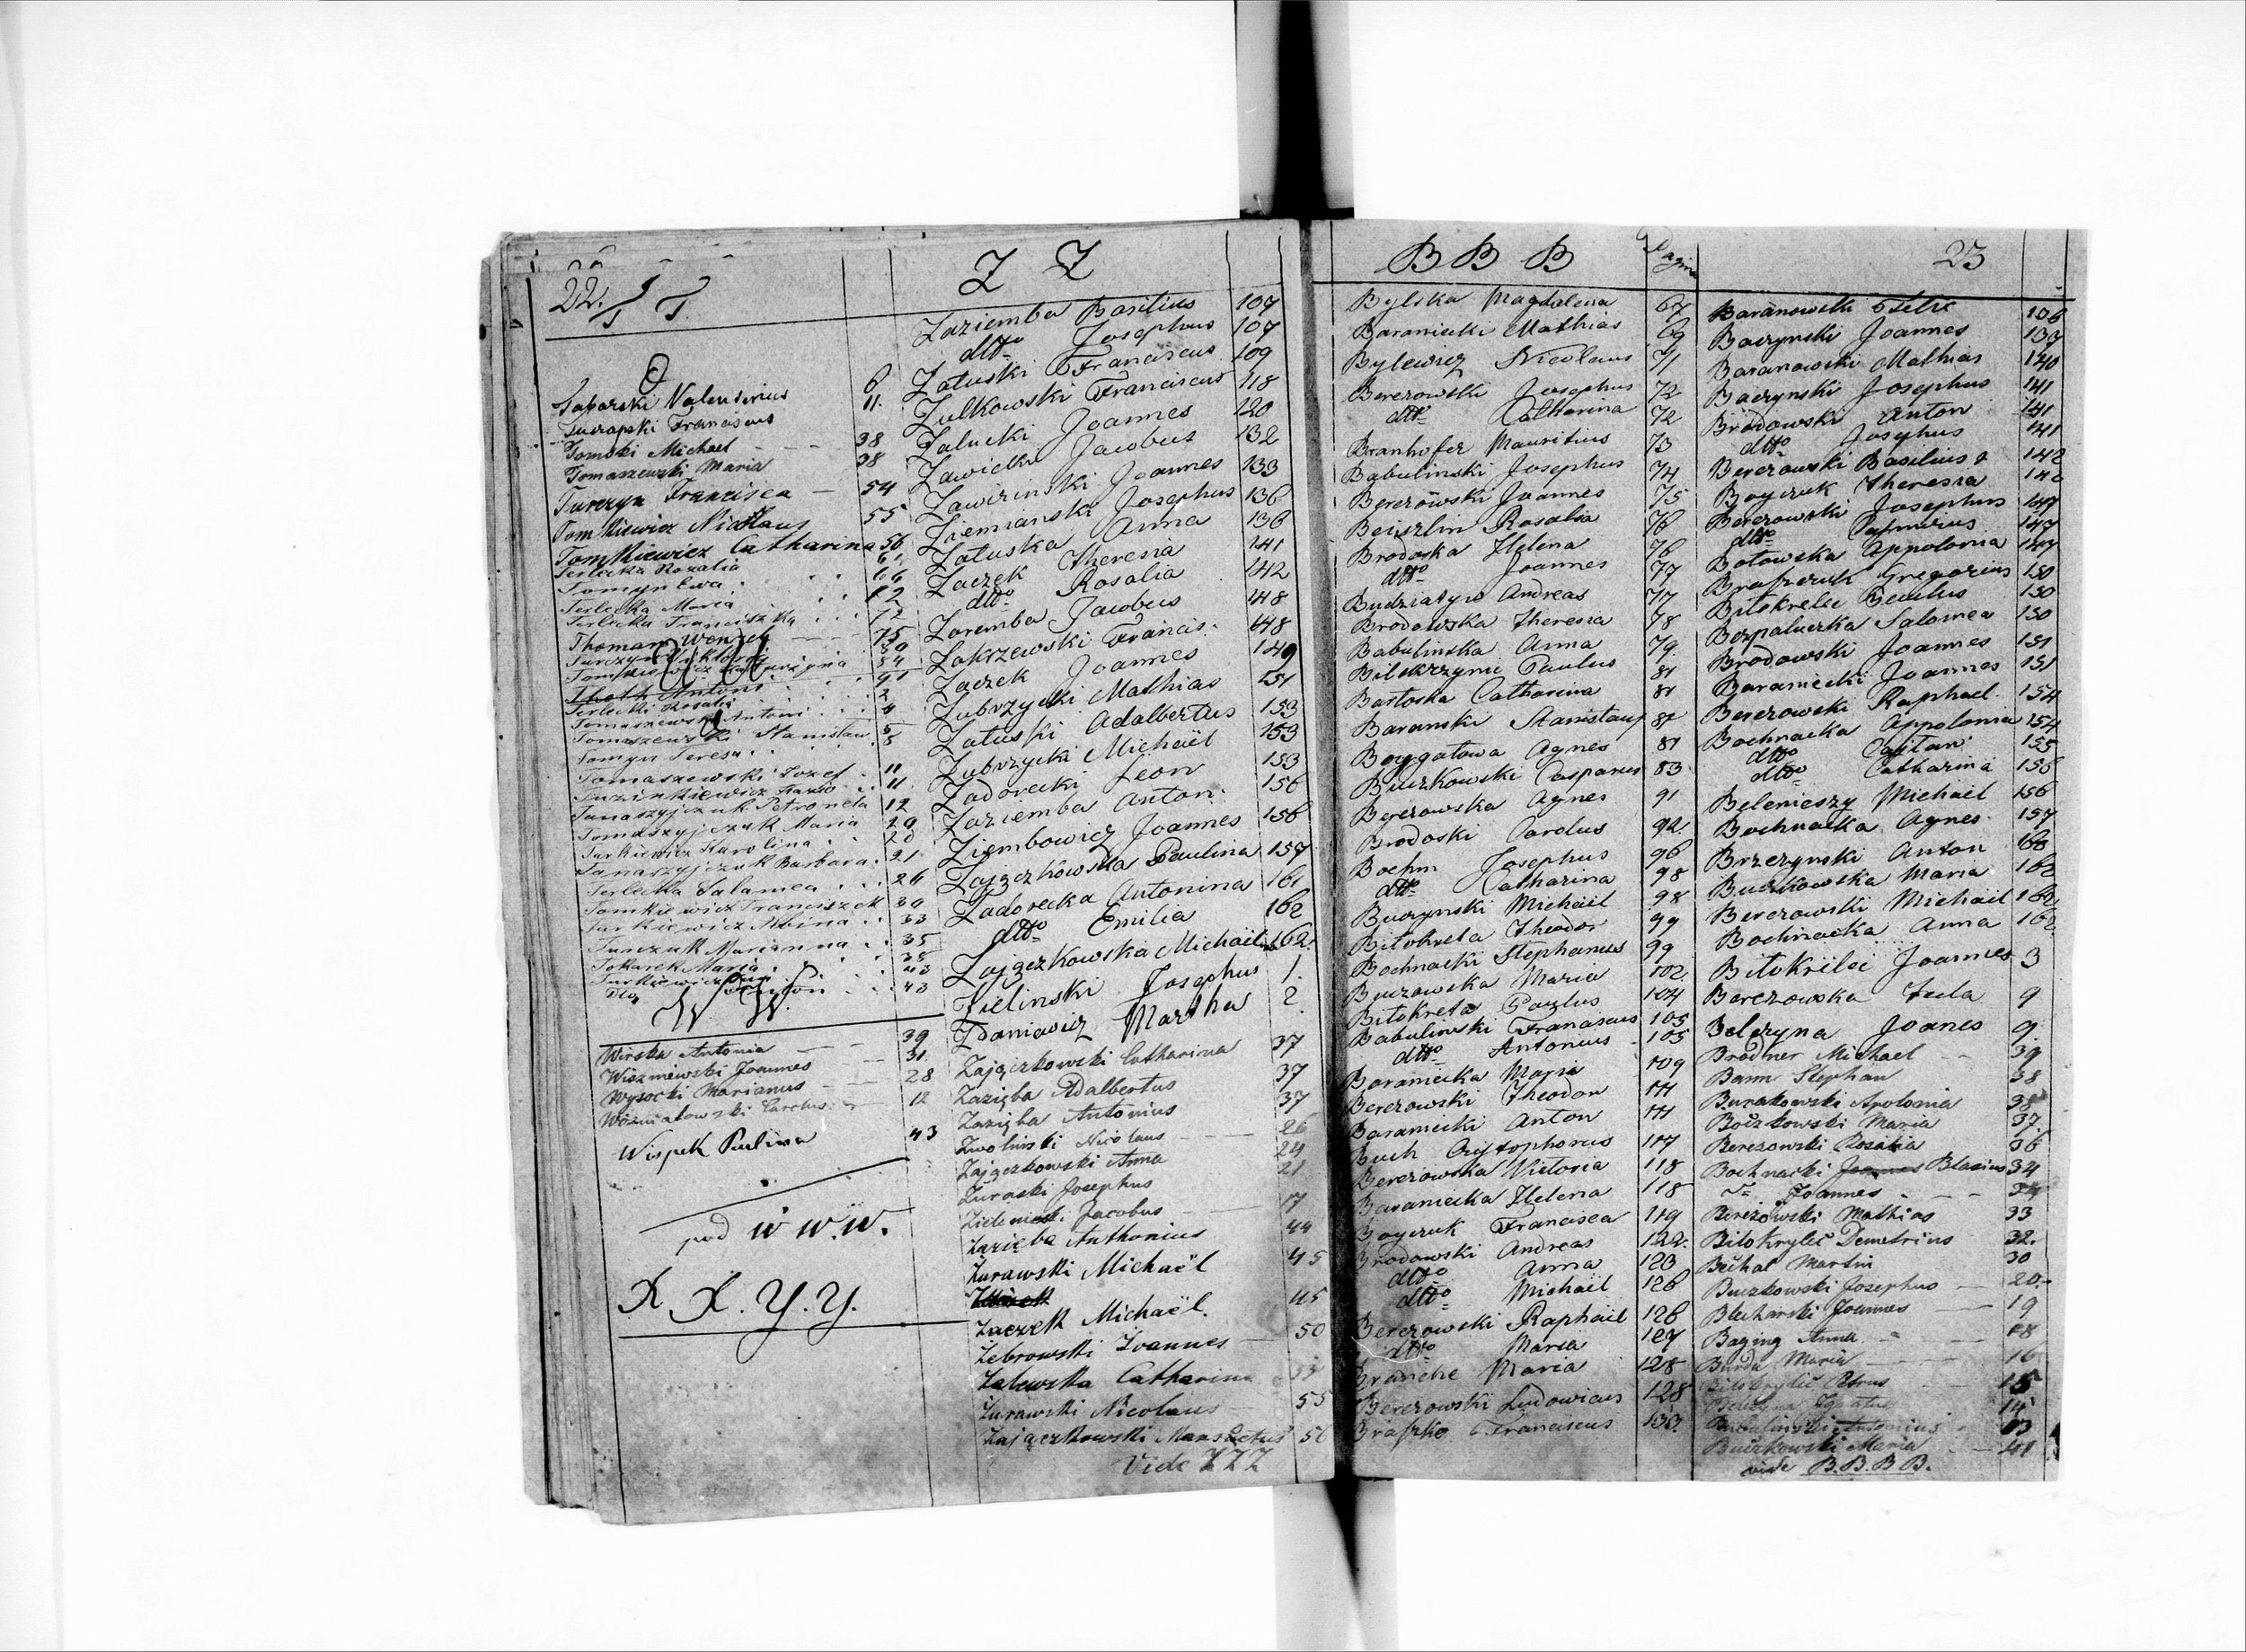 22. T T
Saparski Valendinus 6
Tuczapski Franciscus 11.
Tomski Michael 38
Tomaszewski Maria 38
Turczyn Francisca 54
Tomkiewicz Nicolaus 55
Tomkiewicz Catharina 56
Terlecka Rozalia 61
Tomyn Ewa 66
Terlecka Maria
Terlecka Franciszka 72
Thoman Wenzel 75
Thoth Antoni
Terlecki
Tomaszewski Antoni
Tomaszewski Stanislaw 5
Tomyn Teresa 8
Tomaszewski Jozef 11
Tanaszyjczuk Petronela 12
Maria
Turkiewicz Karolina
Tanaszyjczuk Barbara 21
Terlecka Salamea 26
Tomkiewicz Franciszek 30
Turkiewicz Albina 33
Turczuk Marianna 35
Tokarek Maria 38
W W.
Wirska Antonia 39
Wiszniewski Joannes 31
Wysocki Marianus 28
Wozniakowski Carolus 12
Wispek Pulina 43
pod W W. W.
X X. Y. Y.
Z Z
Zaziemba Basilius 107
dtto Josephus 107
Załuski Franciscus 109
Zulkowski Franciscus 118
Zalucki Joannes 120
Zawicki Jacobus 132
Zawirinski Joannes 133
Ziemianski Josephus 136
Załuska Anna 136
Zaczek Theresia 141
dtto Rosalia 142
Zaremba Jacobus 148
Zakrzewski Francis. 148
Zaczek Joannes 149
Zubrzycki Mathias 151
Załuski Adalbertus 153
Zubrzycki Michaël 153
Zadorecki Leon 153
Zaziemba Anton. 156
Ziembowicz Joannes 156
Zajączkowska Paulina 157
Zadorecka Antonina 161
dtto Emilia 162
Zajączkowska Michaëlina 162.
Zielinski Josephus 1.
Zdaniewicz Martha 2
Zajączkowski Catharina 37
Zazięba Adalbertus 37
Zazięba Antonius 37
Zwolinski Nicolaus 26
Zajączkowski Anna 24
Zuraski Josephus 21
Zieleniecki Jacobus 17
Zazięba Anthonius 44
Zurawski Michaël 45
Zaczek Michaël. 45
Zebrowski Joannes 50
Zalewska Catharina
Zurawski Nicolaus 55
Zajączkowski Mansuetus 56
Vide ZZZ
B B B Pagina
Bylska Magdalena 67
Baraniecki Mathias 69
Bylewicz Nicolaus 71
Berezowski Josephus 72
dtto Catharina 72
Branhofer Mauritius 73
Babulinski Josephus 74
Berezowski Joannes 75
Beiszlin Rosalia 76
Brodoska Helena 76
dtto Joannes 77
Budziatyn Andreas 77
Brodowska Theresia 78
Babulinska Anna 79.
Bilokrzynic Paulus 81
Bartoska Catharina 81
Baranski Stanislaus 81
Boygatowa Agnes 81
Buczkowski Casparus 83
Berezowska Agnes 91
Brodoski Carolus 92.
Boehm Josephus 96
dtto Catharina 98
Buczynski Michaël 98
Biłokreła Theodor 99
Bochnacki Stephanus 99
Buczowska Maria 102
Biłokreła Paulus 104
Babulinski Franciscus 105
dtto Antonius 105
Baraniecka Maria 109
Berezowski Theodor 111
Baraniecki Anton 111
Buch Crystophorus 117
Berezowska Victoria 118
Baraniecka Helena 118
Boyczuk Francisca 119
Brodowski Andreas 122.
dtto Anna 123
dtto Michaël 126
Berezowski Raphaël 126
dtto Maria 127
Branche Maria 128
Berezowski Ludowicus 128
Braszko Franciscus 133.
23
Baranowski Petre 106
Baczynski Joannes 133
Baranowski Mathias 140
Baczynski Josephus 141
Brodowski Anton 141
dtto Josephus 141
Berezowski Basilius 142
Boyczuk Theresia 142
Berezowski Josephus 147
dtto 147
Botowska Appolonia 147
Braszczuk Gregorius 150
Biłokrelec Paulus 150
Bezpaluczka Salomea 150
Brodowski Joannes 151
Baraniecki Joannes 151
Berezowski Raphael. 154
Bochnacka Appolonia 154
dtto Cajetan 155
dtto Catharina 156
Belenieszy Michaël 156
Bochnacka Agnes 157
Brzezynski Anton 160
Buczkowska Maria 162
Berezowski Michaël 162
Bochnacka Anna 162
Biłokrilei Joannes 3
Berezowska Juda 9
Belczyna Joanes 9.
Brodner Michael 39
Bann Stephan 38
Burakowski Apolonia 38
Boczkowski Maria 37.
Berezowski Rosalia 36
Bochnacki Blasius 34
Joannes 34
Berezowski Mathias 33
Bilokrylic Demetrius 32.
Bechal Martin 30
Buczkowski Josephus 20
Blecharski Joannes 19
Baging Anna 18
Burda Maria 16
Bilokrylic Petrus 15
14
Babulinski Antonius 13
Buczkowski Maria 41
vide B.B.B B.